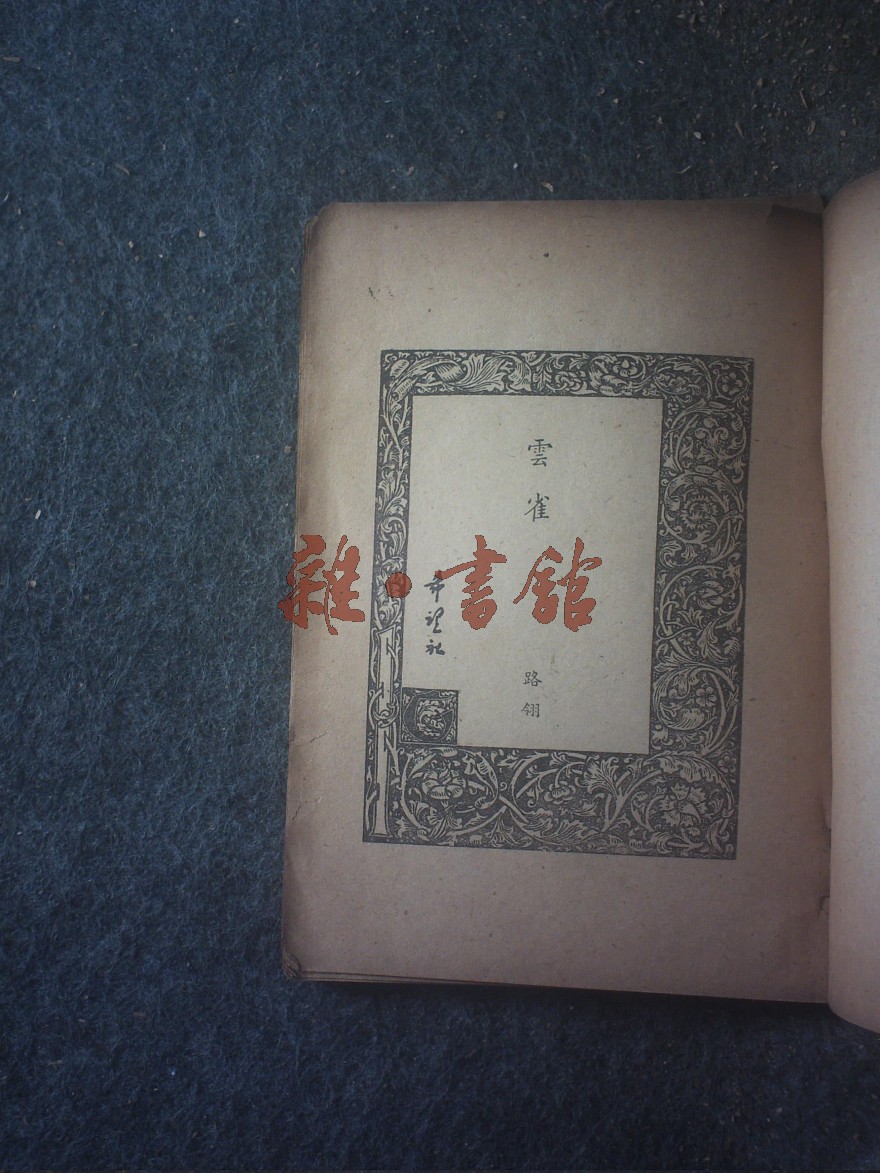 雲雀
路翎
希望社
雜·書館